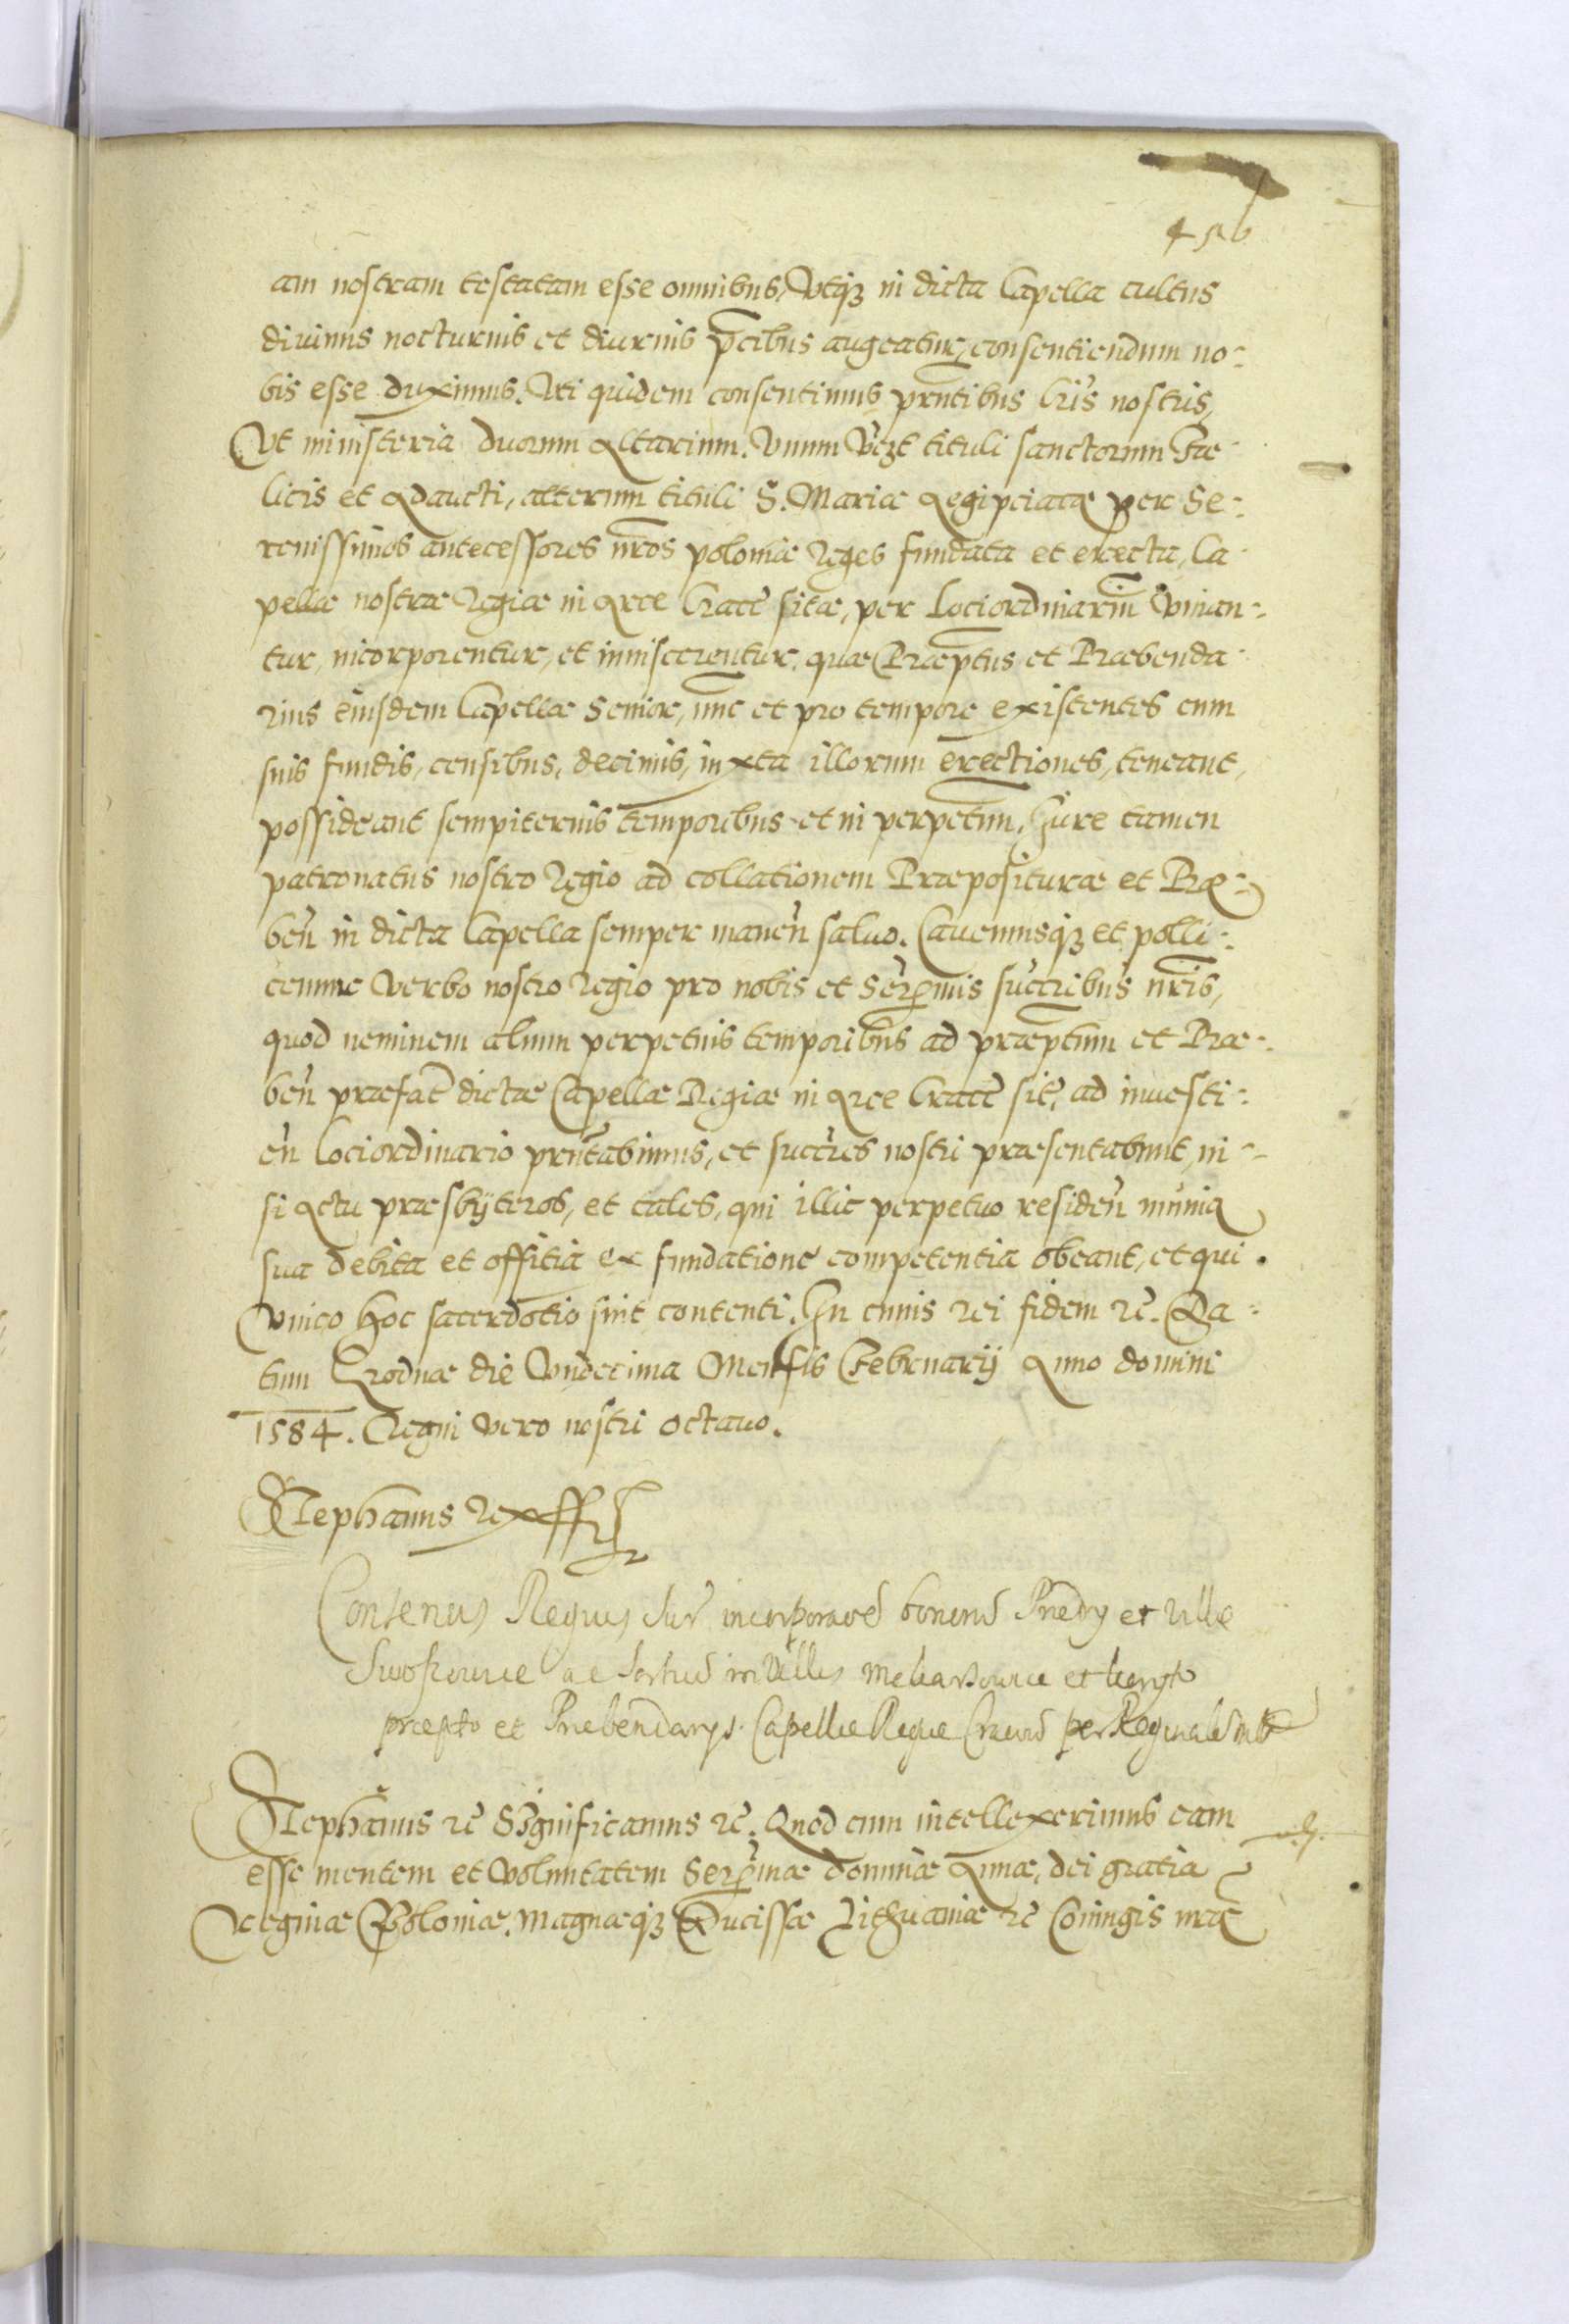 456
am nostram testatam esse omnibus, Vtqȝ in dicta Capella cultus
diuinus nocturnis et diurnis p̄cibus augeatur, consentiendum no-
bis esse duximus. Vti quidem consentimus prntibus l̄ris nostris,
Vt ministeria duorum Altarium. Vnum V̄czt tituli sanctorum Fæ-
licis et Adaucti, alterum tituli S. Mariæ Aegipciacæ per Se-
renissimos antecessores nr̄os poloniæ Reges fundata et erecta, Ca-
pellæ nostræ Regiæ in Arce Cracc̄ sitæ, per Lociordinariū Vnian-
tur, incorporentur, et inuiscerentur, quæ Præptus et Præbenda-
rius eiusdem Capellæ Senior, nūc et pro tempore existentes cum
suis fundis, censibus, decimis, iuxta illorum erectiones, teneant,
possideant sempiternis temporibus et in perpetuū, Iure tamen
patronatus nostro Regio ad collationem Præposituræ et Præ-
beñ in dicta Capella semper maneñ saluo. Cauemusqȝ et polli-
cemur Verbo nostro Regio pro nobis et Serp̄mis succribus nr̄is,
quod neminem alium perpetuis temporibus ad præptum et Præ-
beñ præfat̄ dictæ Capellæ Regiæ in Arce Cracc̄ sit̄, ad inuesti-
eñ Lociordinario prntabimus, et succres nostri præsentabunt, ni-
si Actu præsbyteros, et tales, qui illic perpetuo resideñ munia
sua debita et offitia ex fundatione competentia obeant, et qui
Vnico hoc sacerdotio sint contenti. In cuius rei fidem rc̄. Da-
tum Grodnæ die Vndecima Mensis Februarij Anno domini
1584. Regni vero nostri octauo.
Stephanus Rex ssȝt
Consensus Regius incorporaōē bonorū Prædy et Villæ
ac in Villis et
præpto et Præbendarys Capellæ Regiæ Cracovi per Reginalē
Stephanus rc̄ Significamus rc̄. Quod cum intellexerimus eam
esse mentem et Voluntatem Serp̄mæ dominæ Annæ, dei gratia
Reginæ Poloniæ, Magnæqȝ Ducissæ Lithuaniæ rc̄ Coniugis nr̄æ